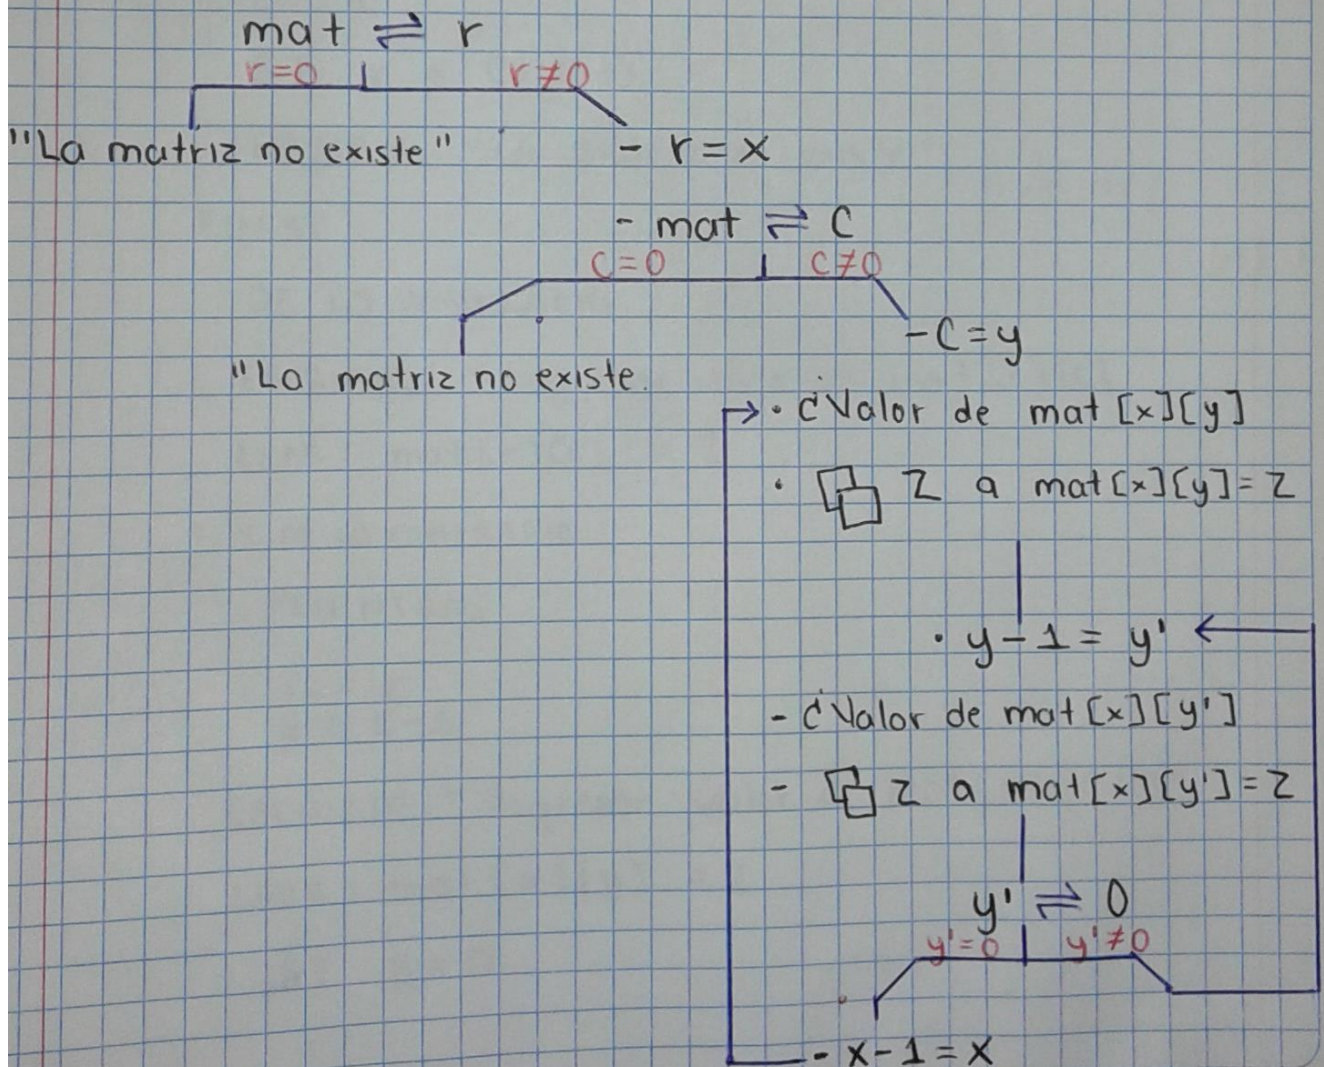 mat ⇌ r
r=0 r≠0
"La matriz no existe"
- r = x
- mat ⇌ C
C=0 C≠0
- C = y
"La matriz no existe.
→ · ¿Valor de mat [x][y]
· Z a mat[x][y] = Z
· y - 1 = y' ←
- ¿Valor de mat [x][y']
- z a mat[x][y'] = Z
y' ⇌ 0
y'=0 y'≠0
- x - 1 = x